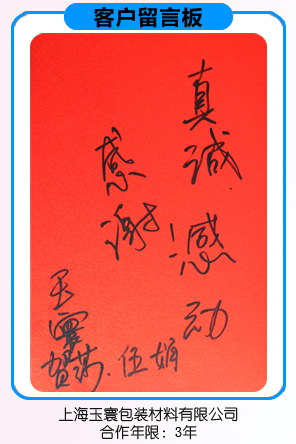 客户留言板
真诚感动
感谢
玉寰
贺荡·伍娟
上海玉寰包装材料有限公司
合作年限：3年